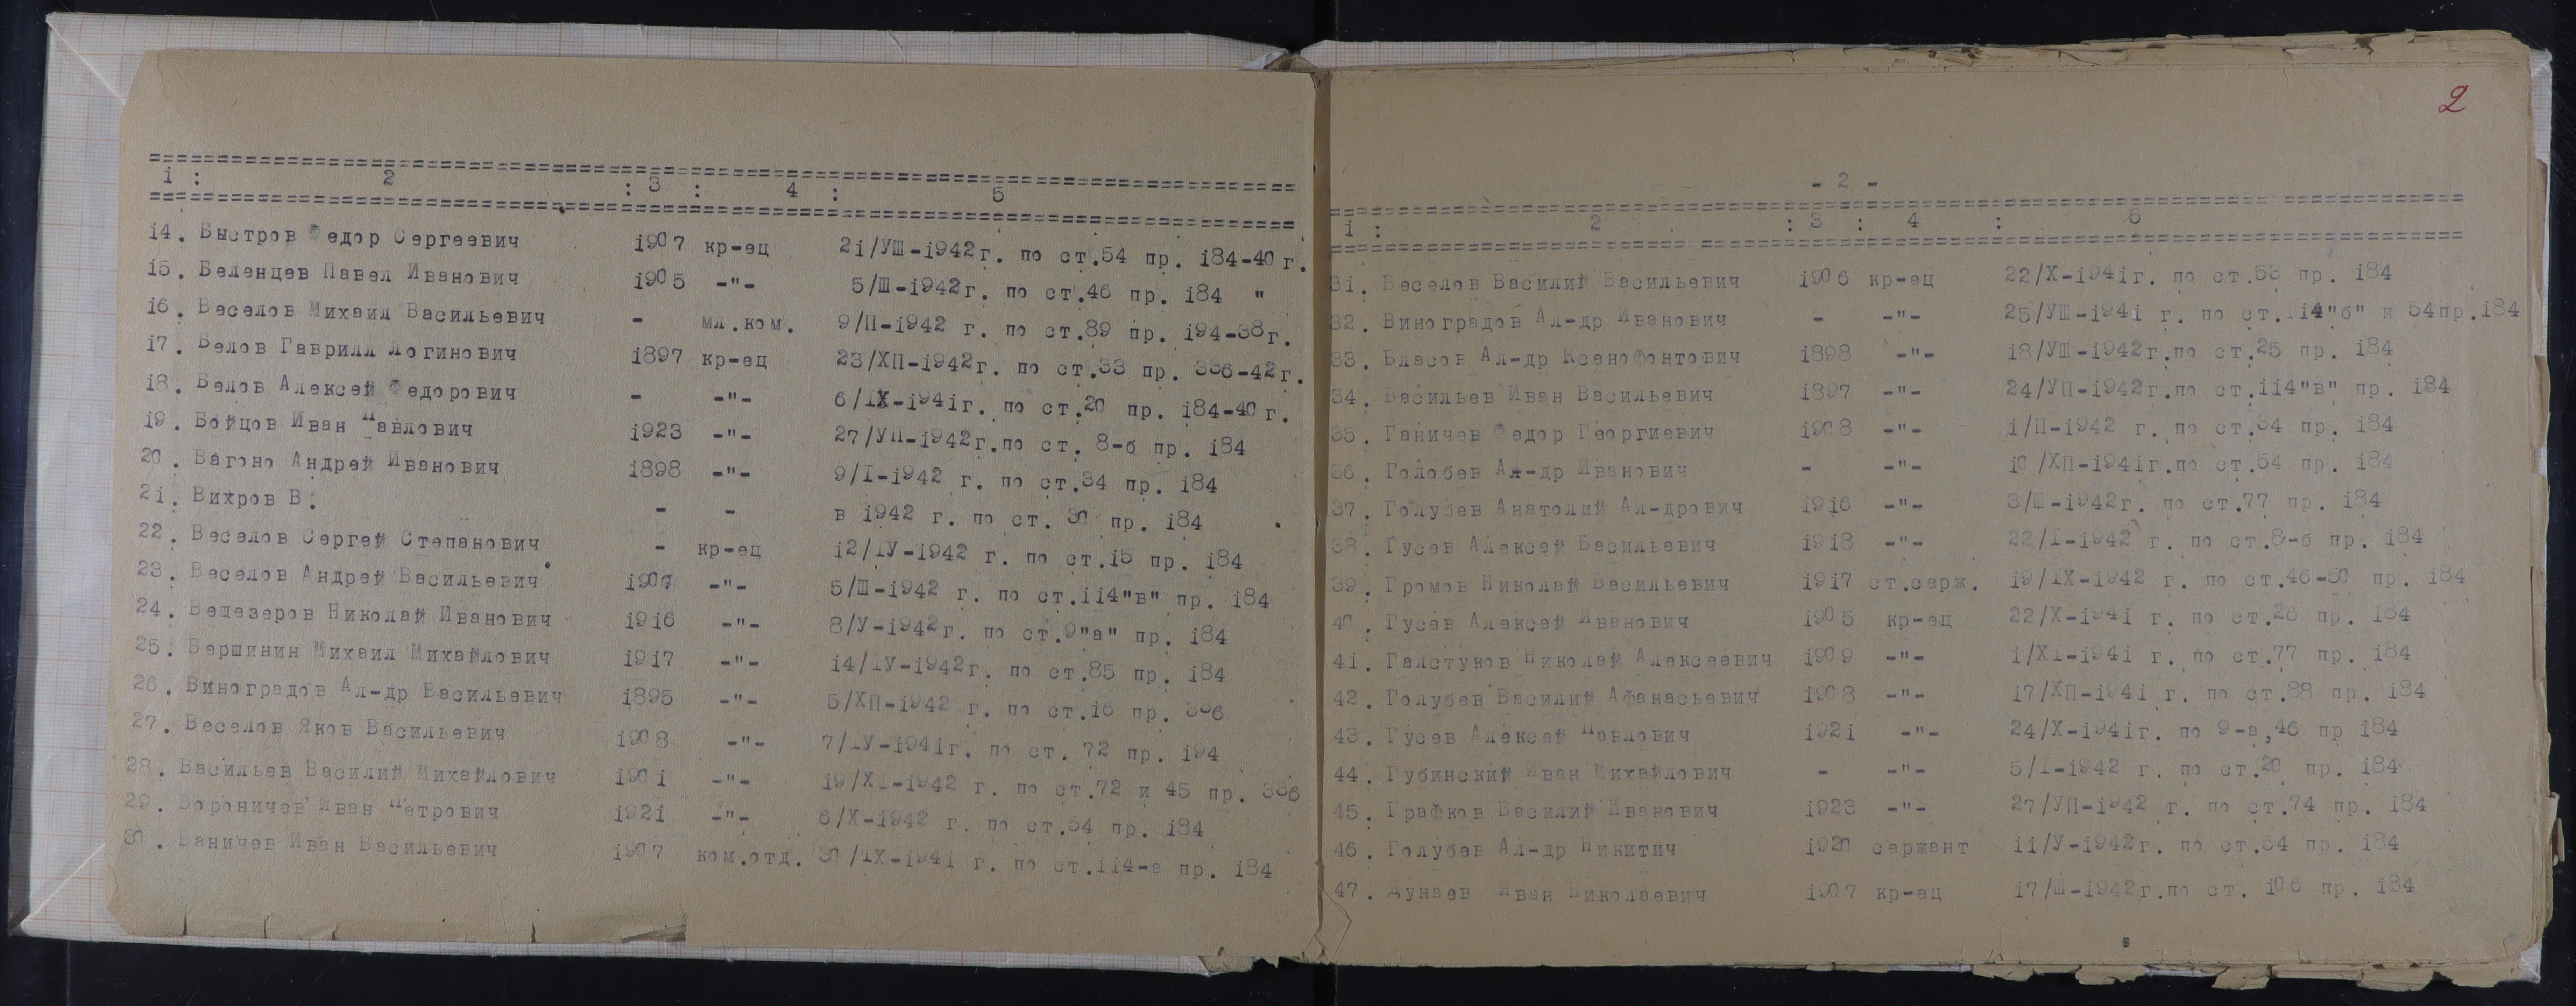 i : 2 : 3 : 4 : 5
i4. Быстров Федор Сергеевич i907 кр-ец 2i/УШ-i942г. по ст.54 пр. i84-40 г.
i5. Беленцев Павел Иванович i905 -"- 5/Ш-i942г. по ст.46 пр. i84 "
i6. Веселов Михаил Васильевич - мл.ком. 9/П-i942 г. по ст.89 пр. i94-38г.
i7. Белов Гаврилл Логинович i897 кр-ец 23/ХП-i942г. по ст.33 пр. 336-42г.
i8. Белов Алексей Федорович - -"- 6/IX-i94iг. по ст.20 пр. i84-40 г.
i9. Бойцов Иван Павлович i923 -"- 27/УП-i942г.по ст. 8-б пр. i84
20. Вагоно Андрей Иванович i898 -"- 9/I-i942 г. по ст.34 пр. i84
2i. Вихров В. - - в i942 г. по ст. 30 пр. i84
22. Веселов Сергей Степанович - кр-ец i2/IУ-i942 г. по ст.i5 пр. i84
23. Веселов Андрей Васильевич i907 -"- 5/Ш-i942 г. по ст.ii4"в" пр. i84
24. Вещезеров Николай Иванович i9i6 -"- 8/У-i942г. по ст.9"а" пр. i84
25. Вершинин Михаил Михайлович i9i7 -"- i4/IУ-i942г. по ст.85 пр. i84
26. Виноградов Ал-др Васильевич i895 -"- 5/ХП-i942 г. по ст.i6 пр. 336
27. Веселов Яков Васильевич i908 -"- 7/IУ-i94iг. по ст. 72 пр. i94
28. Васильев Василий Михайлович i90i -"- i9/XI-i942 г. по ст.72 и 45 пр. 336
29. Вороничев Иван Петрович i92i -"- 6/Х-i942 г. по ст.54 пр. i84
30. Ваничев Иван Васильевич i907 ком.отд. 30/IX-i94i г. по ст.ii4-а пр. i84
2
- 2 -
i : 2 : 3 : 4 : 5
3i. Веселов Василий Васильевич i906 кр-ец 22/Х-i94iг. по ст.53 пр. i84
32. Виноградов Ал-др Иванович - -"- 25/УШ-i94i г. по ст.ii4"б" и 54пр.i84
33. Власов Ал-др Ксенофонтович i898 -"- i8/УШ-i942г.по ст.25 пр. i84
34. Васильев Иван Васильевич i897 -"- 24/УП-i942г.по ст.ii4"в" пр. i84
35. Ганичев Федор Георгиевич i908 -"- i/П-i942 г. по ст.34 пр. i84
36. Голобев Ал-др Иванович - -"- i0/ХП-i94iг.по ст.54 пр. i84
37. Голубев Анатолий Ал-дрович i9i6 -"- 3/Ш-i942г. по ст.77 пр. i84
38. Гусев Алексей Васильевич i9i8 -"- 22/I-i942 г. по ст.8-б пр. i84
39. Громов Николай Васильевич i9i7 ст.серж. i9/IX-i942 г. по ст.46-50 пр. i84
40. Гусев Алексей Иванович i905 кр-ец 22/Х-i94i г. по ст.26 пр. i84
4i. Галстуков Николай Алексеевич i909 -"- i/XI-i94i г. по ст.77 пр. i84
42. Голубев Василий Афанасьевич i908 -"- i7/ХП-i94i г. по ст.88 пр. i84
43. Гусев Алексей Павлович i92i -"- 24/Х-i94iг. по 9-а,46 пр i84
44. Губинский Иван Михайлович - -"- 5/I-i942 г. по ст.20 пр. i84
45. Графков Василий Иванович i923 -"- 27/УП-i942 г. по ст.74 пр. i84
46. Голубев Ал-др Никитич i920 сержант ii/У-i942г. по ст.54 пр. i84
47. Дунаев Иван Николаевич i907 кр-ец i7/Ш-i942г.по ст. i06 пр. i84